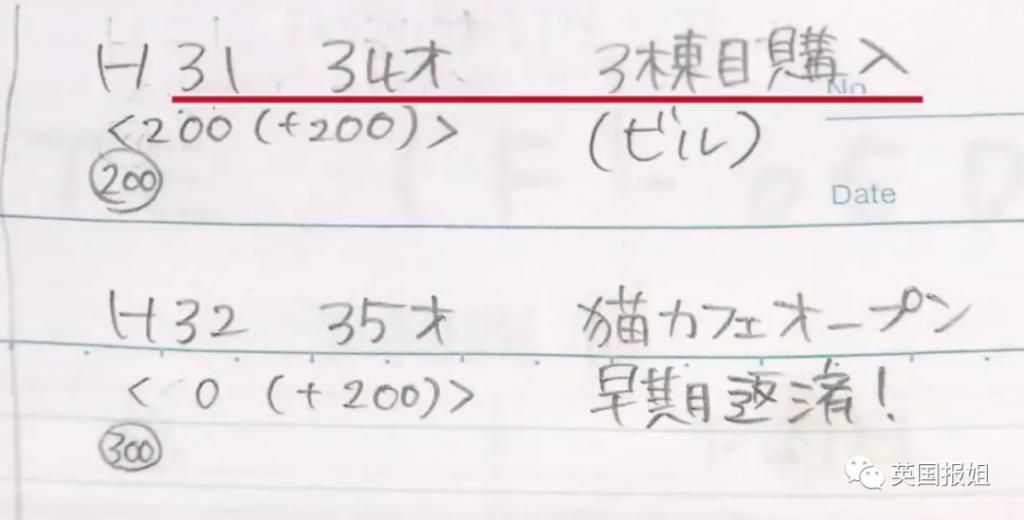 H 31 34才 3棟目購入
No.
<200 (+200)> (ビル)
200
Date
H32 35才 猫カフェオープン
< 0 (+200)> 早期返済！
300
英国报姐